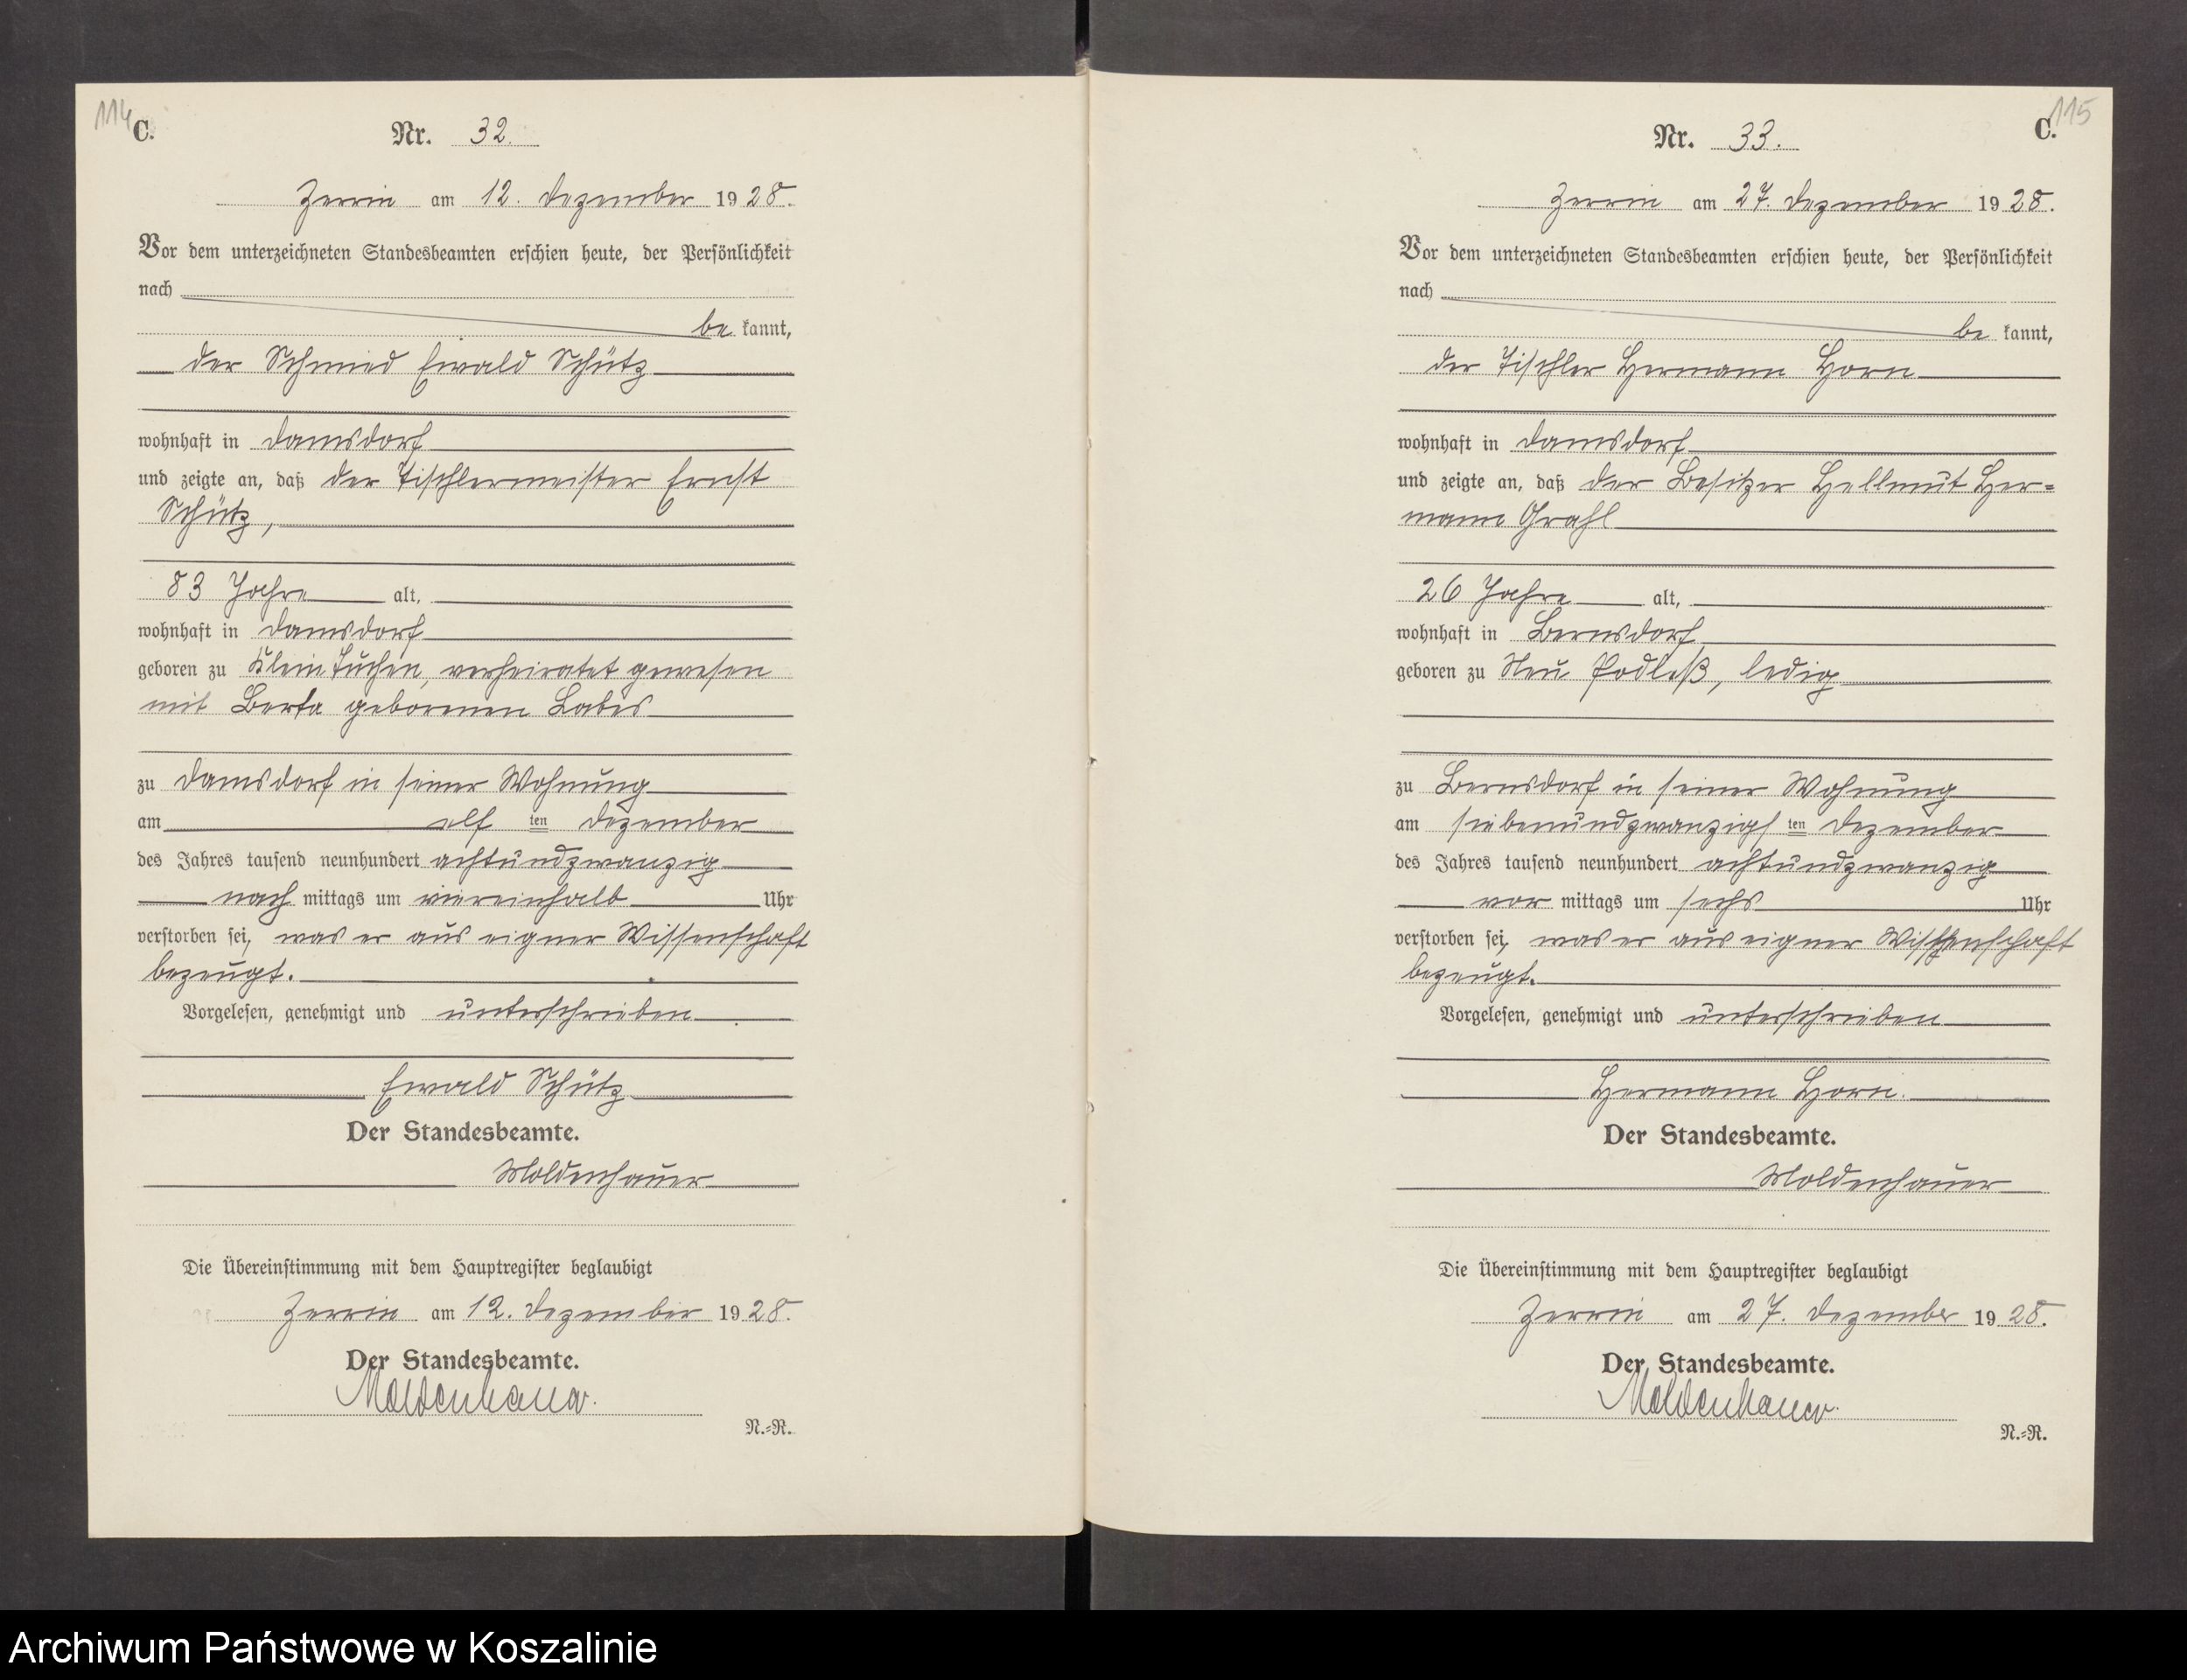 114
C.
Nr. 32.
Zerrin am 12. Dezember 1928.
Vor dem unterzeichneten Standesbeamten erschien heute, der Persönlichkeit
nach
be kannt,
der Schmied Ewald Schütz
wohnhaft in Damsdorf
und zeigte an, daß der Tischlermeister Ernst
Schütz,
83 Jahre alt,
wohnhaft in Damsdorf
geboren zu Klein Tuchen, verheiratet gewesen
mit Berta geborenen Labes
zu Damsdorf in seiner Wohnung
am elf ten Dezember
des Jahres tausend neunhundert achtundzwanzig
nach mittags um viereinhalb Uhr
verstorben sei, was er aus eigner Wissenschaft
bezeugt.
Vorgelesen, genehmigt und unterschrieben
Ewald Schütz
Der Standesbeamte.
Moldenhauer
Die Übereinstimmung mit dem Hauptregister beglaubigt
Zerrin am 12. Dezember 1928.
Der Standesbeamte.
Moldenhauer.
N.=R.
115
C.
Nr. 33.
Zerrin am 27. Dezember 1928.
Vor dem unterzeichneten Standesbeamten erschien heute, der Persönlichkeit
nach
be kannt,
der Tischler Hermann Horn
wohnhaft in Damsdorf
und zeigte an, daß der Besitzer Hellmut Her=
mann Grahl
26 Jahre alt,
wohnhaft in Bernsdorf
geboren zu Neu Podleß, ledig
zu Bernsdorf in seiner Wohnung
am siebenundzwanzigs ten Dezember
des Jahres tausend neunhundert achtundzwanzig
vor mittags um sechs Uhr
verstorben sei, was er aus eigner Wissenschaft
bezeugt.
Vorgelesen, genehmigt und unterschrieben
Hermann Horn.
Der Standesbeamte.
Moldenhauer
Die Übereinstimmung mit dem Hauptregister beglaubigt
Zerrin am 27. Dezember 1928.
Der Standesbeamte.
Moldenhauer.
N.=R.
Archiwum Państwowe w Koszalinie